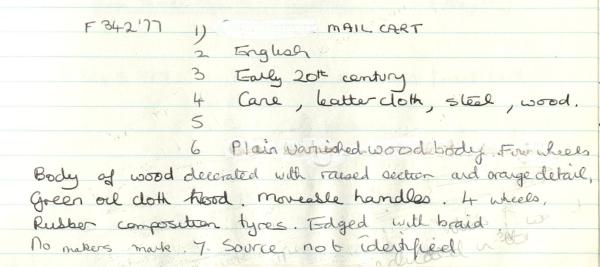 F 342'77 1) MAIL CART
2 English
3 Early 20th century
4 Cane, leather cloth, steel, wood.
5
6 Plain varnished wood body. Four wheels
Body of wood decorated with raised section and orange detail,
Green oil cloth hood. Moveable handles. 4 wheels,
Rubber composition tyres. Edged with braid
No makers mark. 7. Source not identified